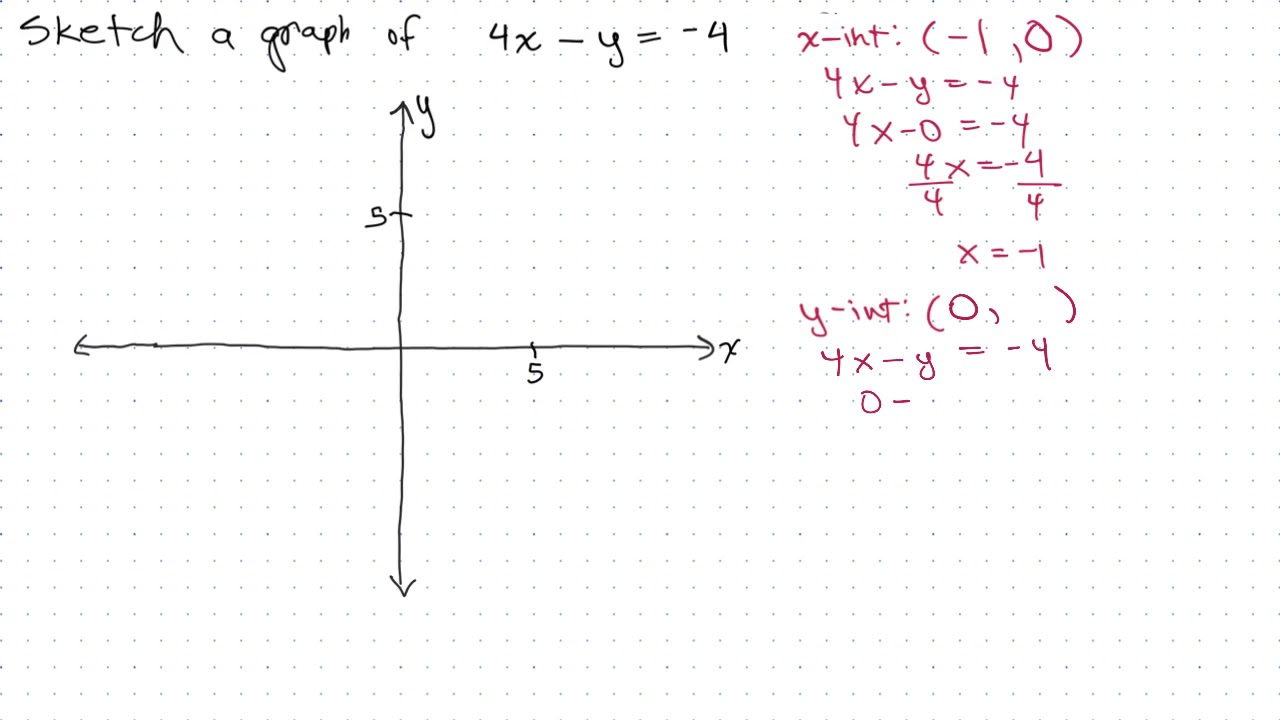 Sketch a graph of 4x - y = -4
y
5
x
5
x-int: (-1, 0)
4x - y = -4
4x - 0 = -4
4x = -4
4 4
x = -1
y-int: (0, )
4x - y = -4
0 -